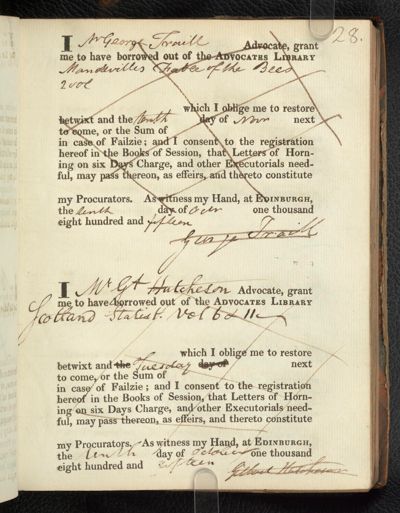 28.
I Mr George Traill Advocate, grant
me to have borrowed out of the ADVOCATES LIBRARY
Mandevilles Fable of the Bees
2 vols
which I oblige me to restore
betwixt and the tenth day of Novr next
to come, or the Sum of
in case of Failzie; and I consent to the registration
hereof in the Books of Session, that Letters of Horn-
ing on six Days Charge, and other Executorials need-
ful, may pass thereon, as effeirs, and thereto constitute
my Procurators. As witness my Hand, at EDINBURGH,
the tenth day of one thousand
eight hundred and fifteen
George Traill
I Mr Gt Hutcheson Advocate, grant
me to have borrowed out of the ADVOCATES LIBRARY
Scotland Statist. Vol 6 & 11
which I oblige me to restore
betwixt and the Tuesday day of next
to come, or the Sum of
in case of Failzie; and I consent to the registration
hereof in the Books of Session, that Letters of Horn-
ing on six Days Charge, and other Executorials need-
ful, may pass thereon, as effeirs, and thereto constitute
my Procurators. As witness my Hand, at EDINBURGH,
the tenth day of October one thousand
eight hundred and fifteen
Gilbert Hutcheson